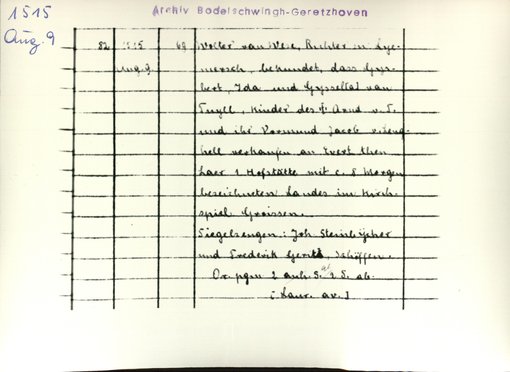 1515
Aug. 9
Archiv Bodelschwingh-Geretzhoven
82 1515 69 Wolter van, Richter in Lye-
Aug. 9. mersch, bekundet, dass Gys-
bert, Ida und Gysselta van
Tuyll, Kinder des † Arnd v. T.
und ihr Vormund Jacob
hell verkaufen an Evert then
Laer 1 Hofstätte mit c. 8 Morgen
bezeichneten Landes im Kirch-
spiel Groissen.
Siegelzeugen: Joh. Steinbÿcher
und Frederik Gerits, Schöffen.
Or. pgm 2 anh. S. 2 S. ab.